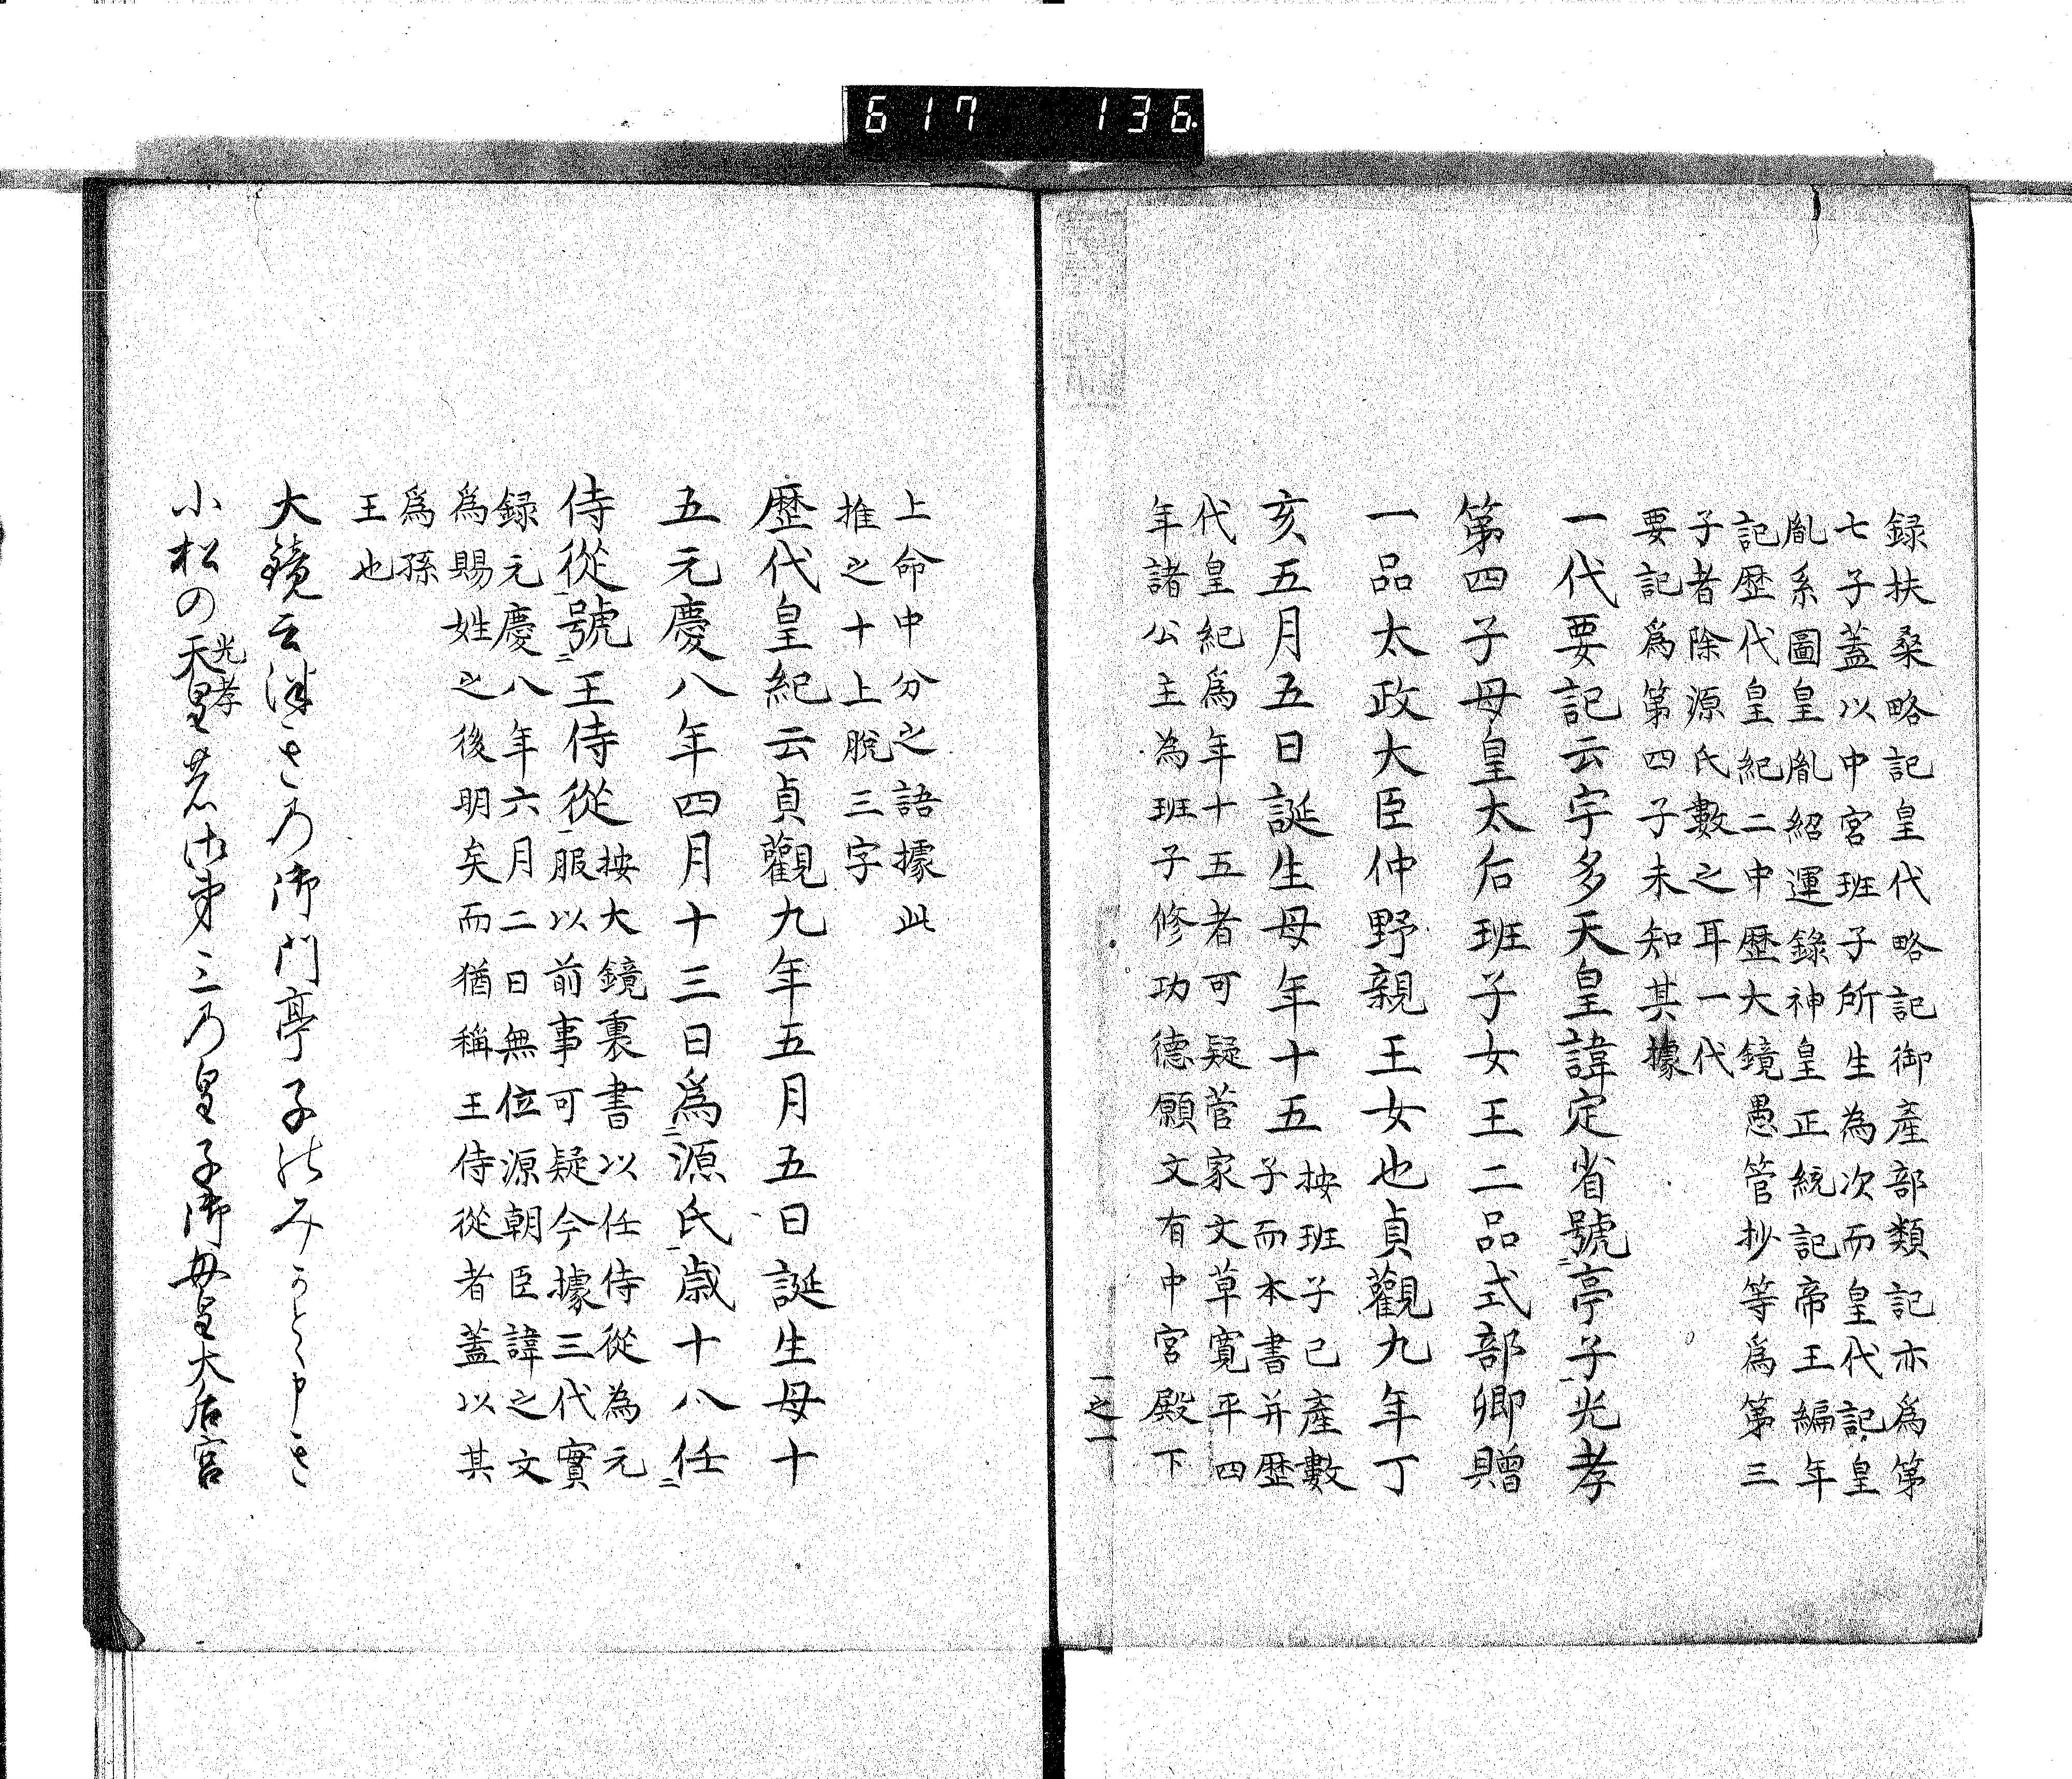 617 136
録扶桑略記皇代略記御産部類記亦爲第
七子蓋以中宮班子所生為次而皇代記皇
胤系圖皇胤紹運錄神皇正統記帝王編年
記歴代皇紀二中歴大鏡愚管抄等爲第三
子者除源氏數之耳一代
要記爲第四子未知其據
一代要記云宇多天皇諱定省號二亭子一光孝
第四子母皇太后班子女王二品式部卿贈
一品太政大臣仲野親王女也貞觀九年丁
亥五月五日誕生母年十五
按班子已產數
子而本書并歴
代皇紀爲年十五者可疑菅家文草寛平四
年諸公主為班子修功德願文有中宮殿下
一之一
上命中分之語據此
推之十上脫三字
歷代皇紀云貞觀九年五月五日誕生母十
五元慶八年四月十三日爲二源氏一歳十八任二
侍從一號二王侍從一
按大鏡裏書以任侍從為元
服以前事可疑今據三代實
録元慶八年六月二日無位源朝臣諱之文
爲賜姓之後明矣而猶稱王侍從者蓋以其
爲孫
王也
大鏡云次きの御門亭子のみかと申き
小松の天皇光孝の御第三の皇子御母皇太后宮